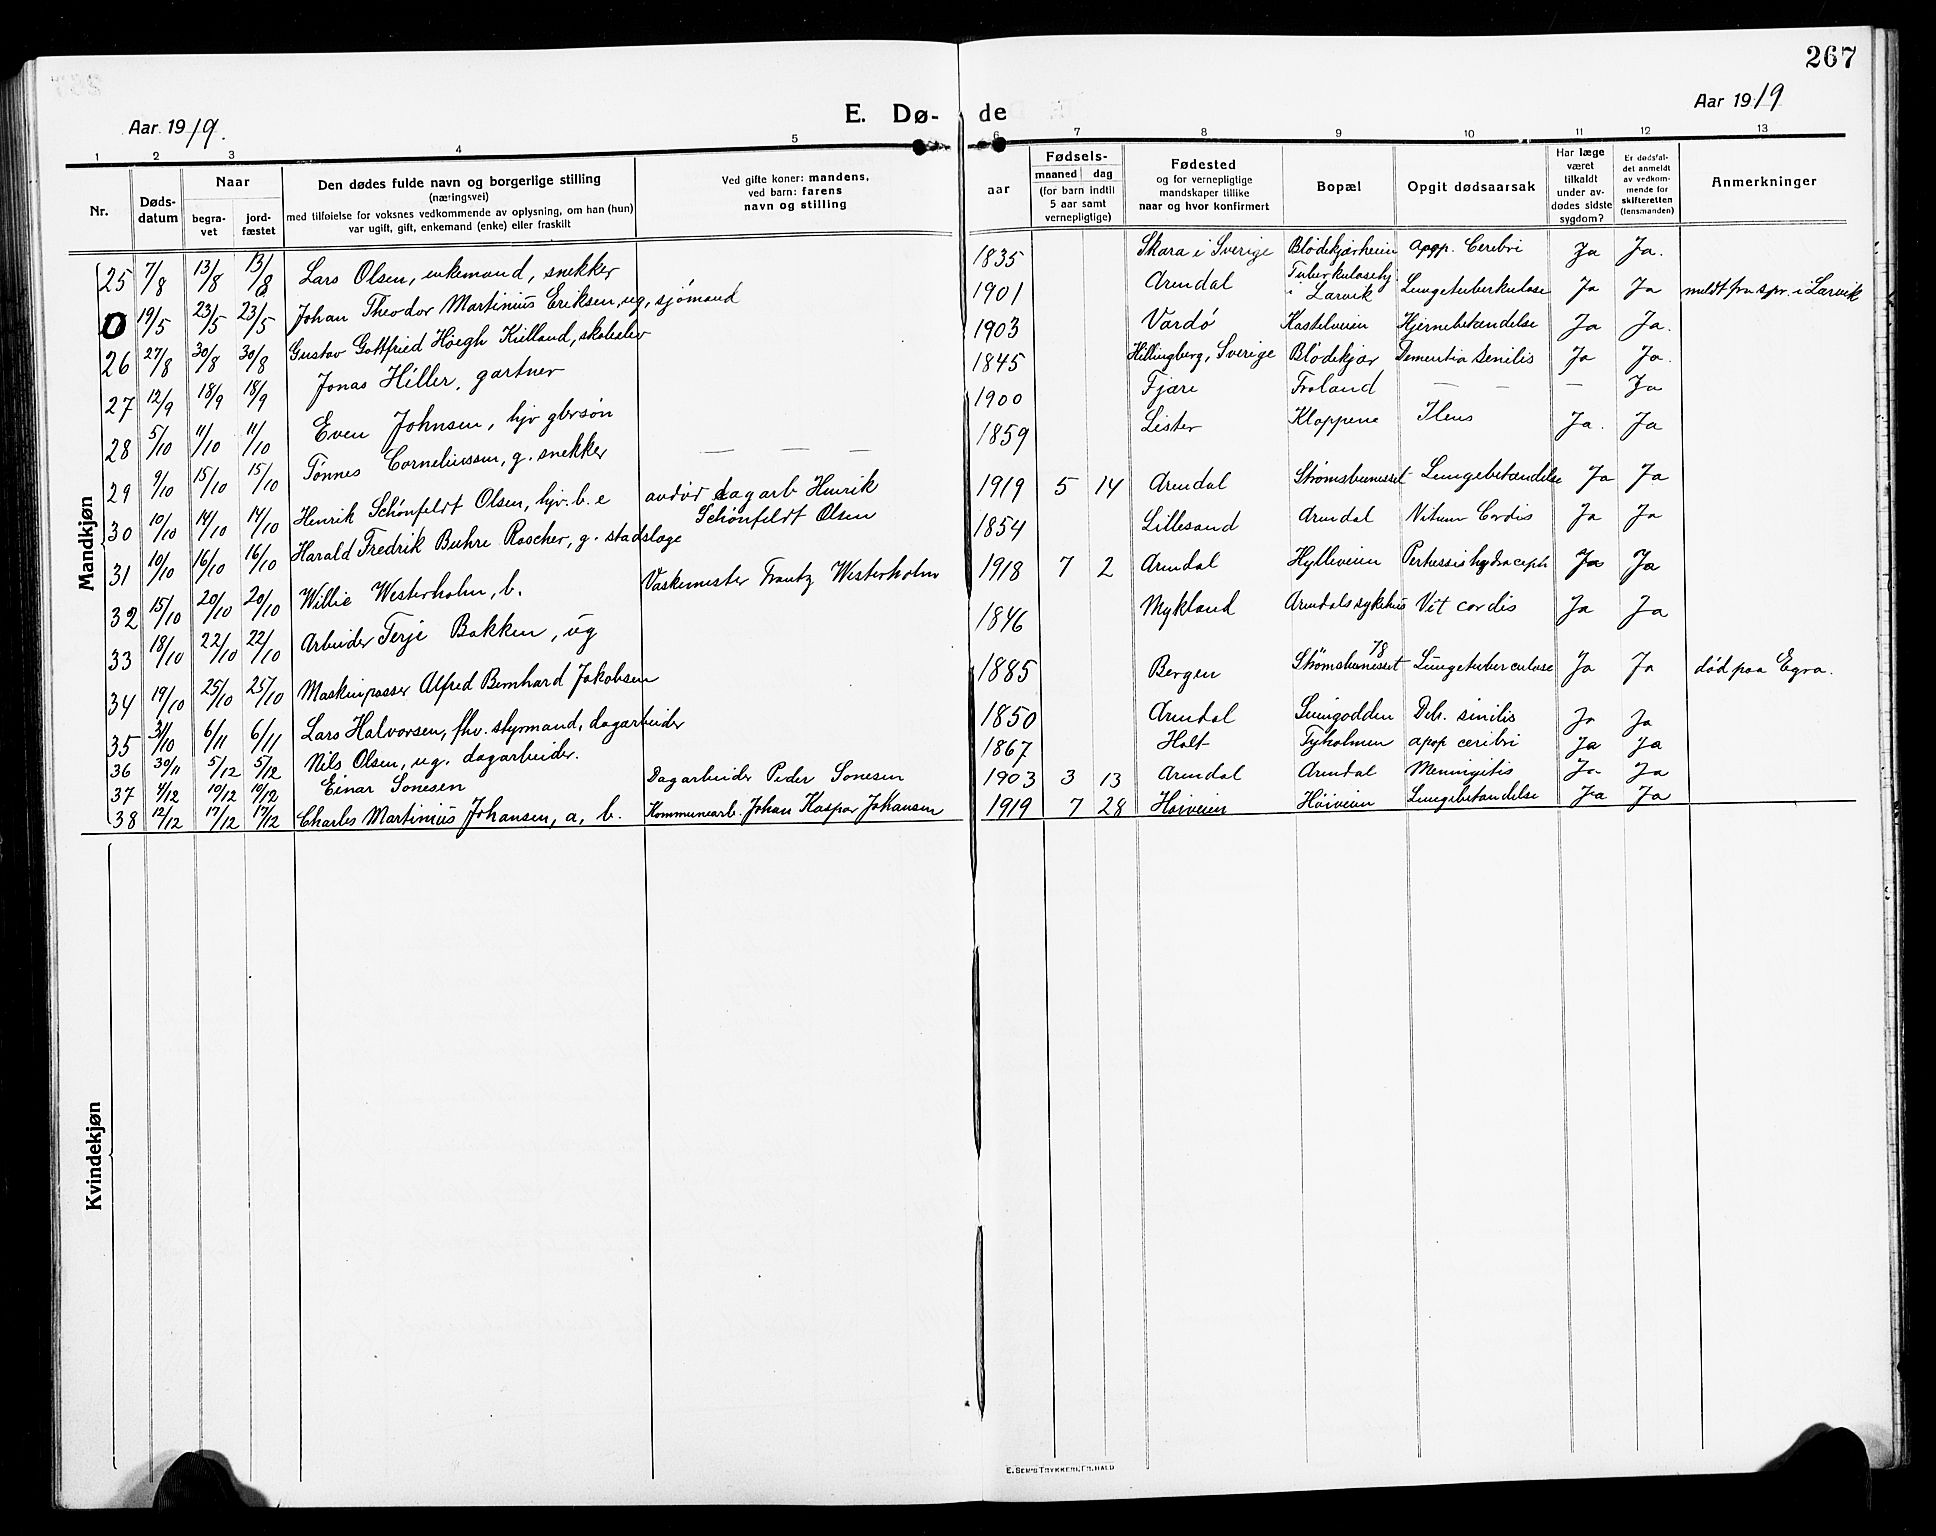 267
Aar 1919.
E. Dø-
de
Aar 1919
1 2 3 4 5 6 7 8 9 10 11 12 13
Nr.
Døds-
datum
Naar
begra-
vet
jord-
fæstet
Den dødes fulde navn og borgerlige stilling
(næringsvei)
med tilføielse for voksnes vedkommende av oplysning, om han (hun)
var ugift, gift, enkemand (enke) eller fraskilt
Ved gifte koner: mandens,
ved barn: farens
navn og stilling
aar
Fødsels-
maaned dag
(for barn indtil
5 aar samt
vernepligtige)
Fødested
og for vernepligtige
mandskaper tillike
naar og hvor konfirmert
Bopæl
Opgit dødsaarsak
Har læge
været
tilkaldt
under av-
dødes sidste
sygdom?
Er dødsfal-
det anmeldt
av vedkom-
mende for
skifteretten
(lensmanden)
Anmerkninger
Mandkjøn
25 7/8 13/8 13/8 Lars Olsen, enkemand, snekker 1835 Skara i Sverige Blødekjærheien apop. Cerebri Ja Ja.
0 19/5 23/5 23/5 Johan Theodor Martinius Eriksen, ug, sjömand 1901 Arendal Tuberkulosehj i Larvik Lungetuberkulose Ja Ja meldt fra spr. i Larvik
26 27/8 30/8 30/8 Gustav Gottfried Höegh Kielland, skoleelev 1903 Vardö Kastelveien Hjernebetændelse Ja Ja.
27 12/9 18/9 18/9 Jonas Hiller, gartner 1845 Hillingberg, Sverige Blödekjær Dementia senilis Ja Ja.
28 5/10 11/10 11/10 Even Johnsen, hjv gbrsøn 1900 Fjære Froland — — — Ja
29 9/10 15/10 15/10 Tönnes Corneliussen, g. snekker — — — 1859 Lister Kloppene Ileus Ja. Ja
30 10/10 14/10 14/10 Henrik Schönfeldt Olsen, hjv. b. e avdør dagarb Henrik
Schönfeldt Olsen 1919 5 14 Arendal Strømsbuneset Lungebetændelse Ja Ja
31 10/10 16/10 16/10 Harald Fredrik Buhre Roscher, g. stadslæge 1854 Lillesand Arendal Vitium Cordis Ja Ja
32 15/10 20/10 20/10 Willie Westerholm, b. Vaskemester Frantz Westerholm 1918 7 2 Arendal Hylleveien Pertussis hydroceph Ja Ja
33 18/10 22/10 22/10 Arbeider Terje Bakken, ug 1846 Mykland Arendals sykehus Vit cordis Ja Ja
34 19/10 25/10 25/10 Maskinpasser Alfred Bernhard Jakobsen 1885 Bergen Strømsbuneset 78 Lungetuberculose Ja Ja død paa Egra.
35 31/10 6/11 6/11 Lars Halvorsen, fhv. styrmand, dagarbeider 1850 Arendal Lungodden Deb. senilis Ja Ja
36 30/11 5/12 5/12 Nils Olsen, ug. dagarbeider. 1867 Holt Tyholmen apop ceribri Ja Ja
37 4/12 10/12 10/12 Einar Sonesen Dagarbeider Peder Sonesen 1903 3 13 Arendal Arendal Meningitis Ja Ja
38 12/12 17/12 17/12 Charles Martinius Johansen, a, b. Kommunearb. Johan Kaspar Johansen 1919 7 28 Höiveien Höiveien Lungebetændelse Ja Ja
Kvindekjøn
E. SEM'S TRYKKERI, FR.HALD